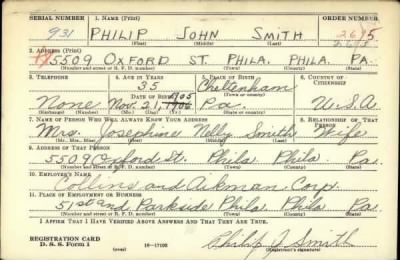 SERIAL NUMBER 1. NAME (Print) ORDER NUMBER
931 PHILIP JOHN SMITH 2615
(First) (Middle) (Last)
2. ADDRESS (Print)
5509 OXFORD ST. PHILA. PHILA. PA.
(Number and street or R. F. D. number) (Town) (County) (State)
3. TELEPHONE 4. AGE IN YEARS 5. PLACE OF BIRTH 6. COUNTRY OF CITIZENSHIP
35 Cheltenham
DATE OF BIRTH (Town or county)
None Nov. 21, 1905 Pa. U.S.A.
7. NAME OF PERSON WHO WILL ALWAYS KNOW YOUR ADDRESS 8. RELATIONSHIP OF THAT PERSON
Mrs. Josephine Nelly Smith Wife
(Mr., Mrs., Miss) (First) (Middle) (Last)
9. ADDRESS OF THAT PERSON
5509 Oxford St. Phila Phila. Pa.
(Number and street or R. F. D. number) (Town) (County) (State)
10. EMPLOYER'S NAME
Collins and Aikman Corp.
11. PLACE OF EMPLOYMENT OR BUSINESS
51st and Parkside Phila Phila Pa.
(Number and street or R. F. D. number) (Town) (County) (State)
I AFFIRM THAT I HAVE VERIFIED ABOVE ANSWERS AND THAT THEY ARE TRUE.
REGISTRATION CARD
D. S. S. Form 1 (over) 16—17105 Philip J Smith
(Registrant's signature)